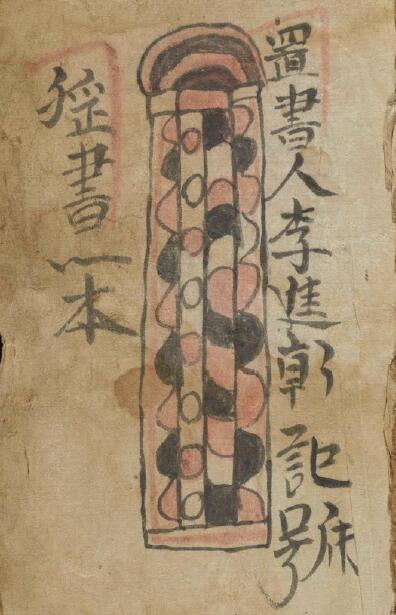 置書人李進彰記號
經書一本